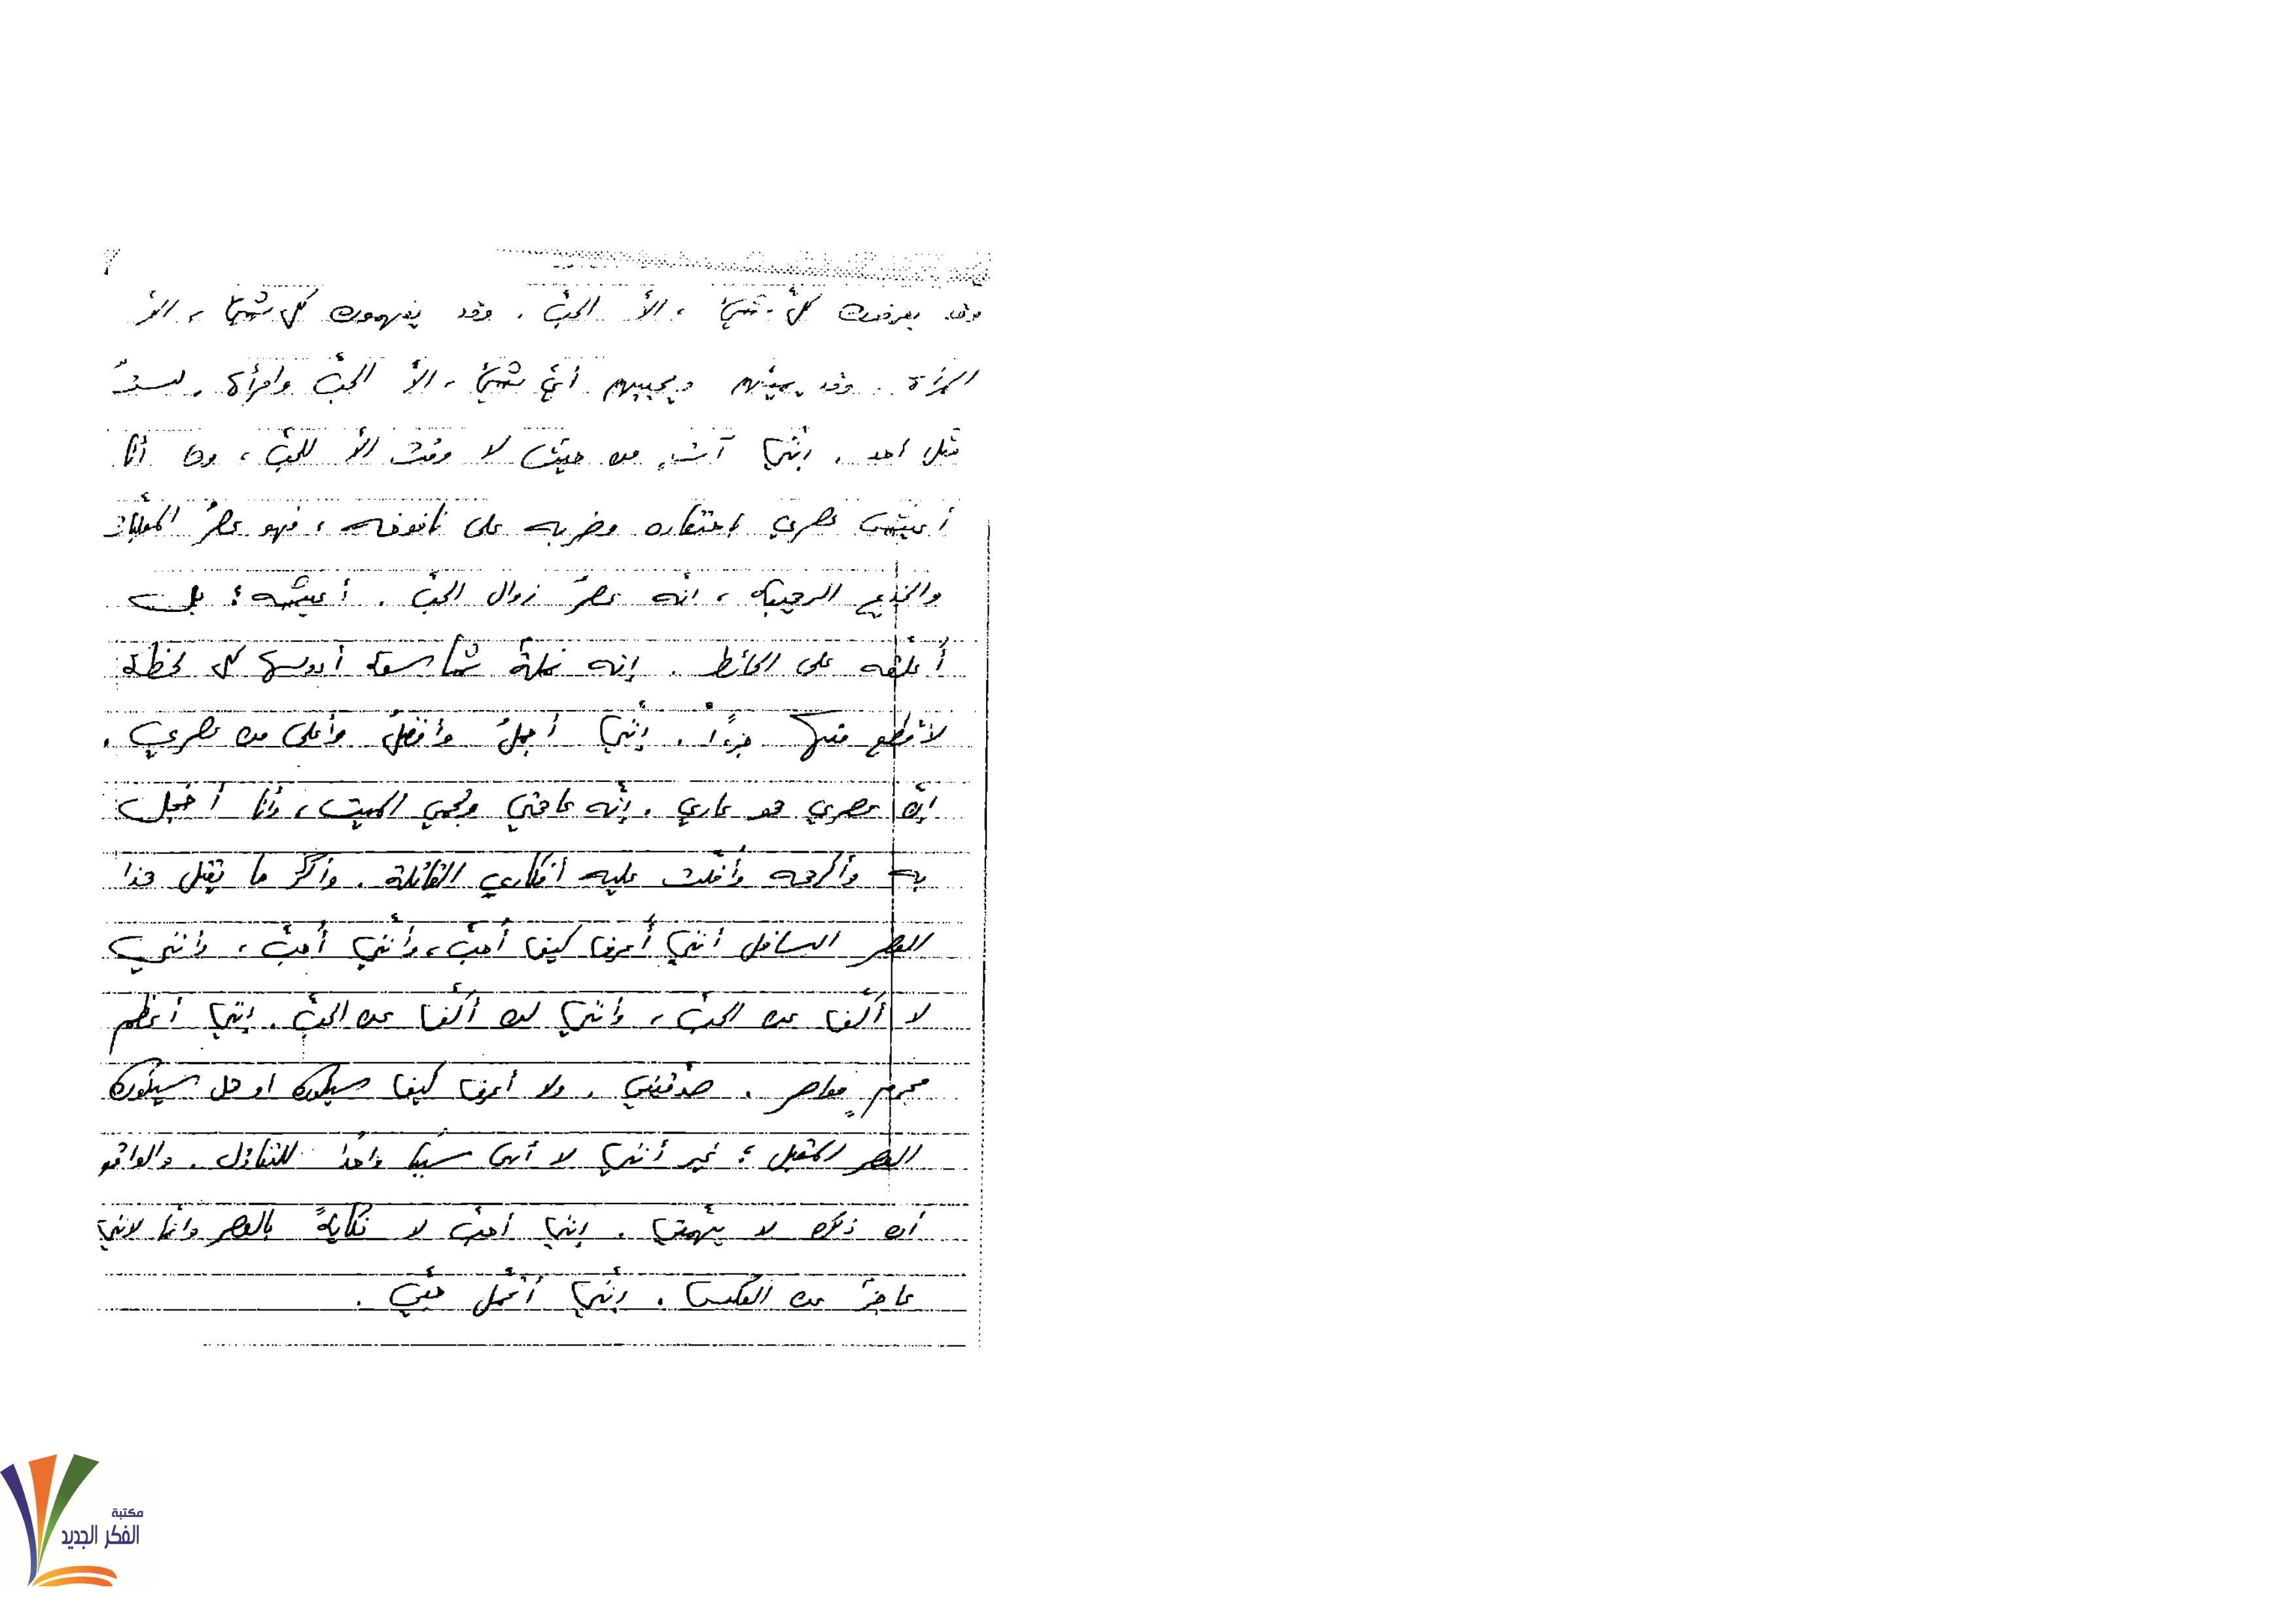 وقد يعرفون كلّ شيء ، الاّ الحبّ . وقد يفهمون كلّ شيء ، الاّ
المرأة . وقد يميتُهم ويحييهم أيّ شيء ، الاّ الحبّ وامرأة . لستُ
مثل أحد . إنّني آتٍ من حيث لا وقت الاّ للحبّ ، وها أنا
أعيش عصري باحتقاره وضربه على نافوخه ، فهو عصرُ المعلبات
والخِدَع الرهيبة ، انّه عصرُ زوال الحبّ . أعيشه ؟ بل
أُعلّقه على الحائط . إنه نملةٌ شمّاء أدوسها كل لحظة
لأقطع منها جزءاً . إنّني أجملُ وأفضلُ وأعلى من عصري .
إنّ عصري هو عاري . إنّه عاهتي ولحمي الميت ، وأنا أخجل
به وأكرهه وأفلت عليه أفكاري القاتلة . وأكثر ما يقتل هذا
العصر السافل أنني أعرف كيف أُحبّ ، وأنّني أُحبّ ، وانني
لا أكُفّ عن الحبّ ، وأنّني لن أكُفّ عن الحبّ . إنّني أعظم
مجرمٍ معاصر . صدّقيني . ولا أعرف كيف سيكون او هل سيكون
العصر المقبل ؛ غير أنني لا أرى سبباً واحداً للتفاؤل . والواقع
أن ذلك لا يهمّني . إنني أحبّ لا نكايةً بالعصر وانما لانني
عاجزٌ عن العكس . إنّني أتحمّل حبّي .
مكتبة
الفكر الجديد